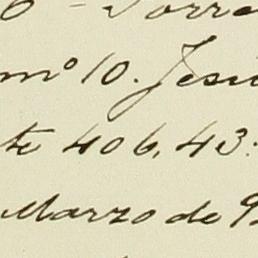 Torre
mo 10. Jesú
te 406,43:
Marzo de 9